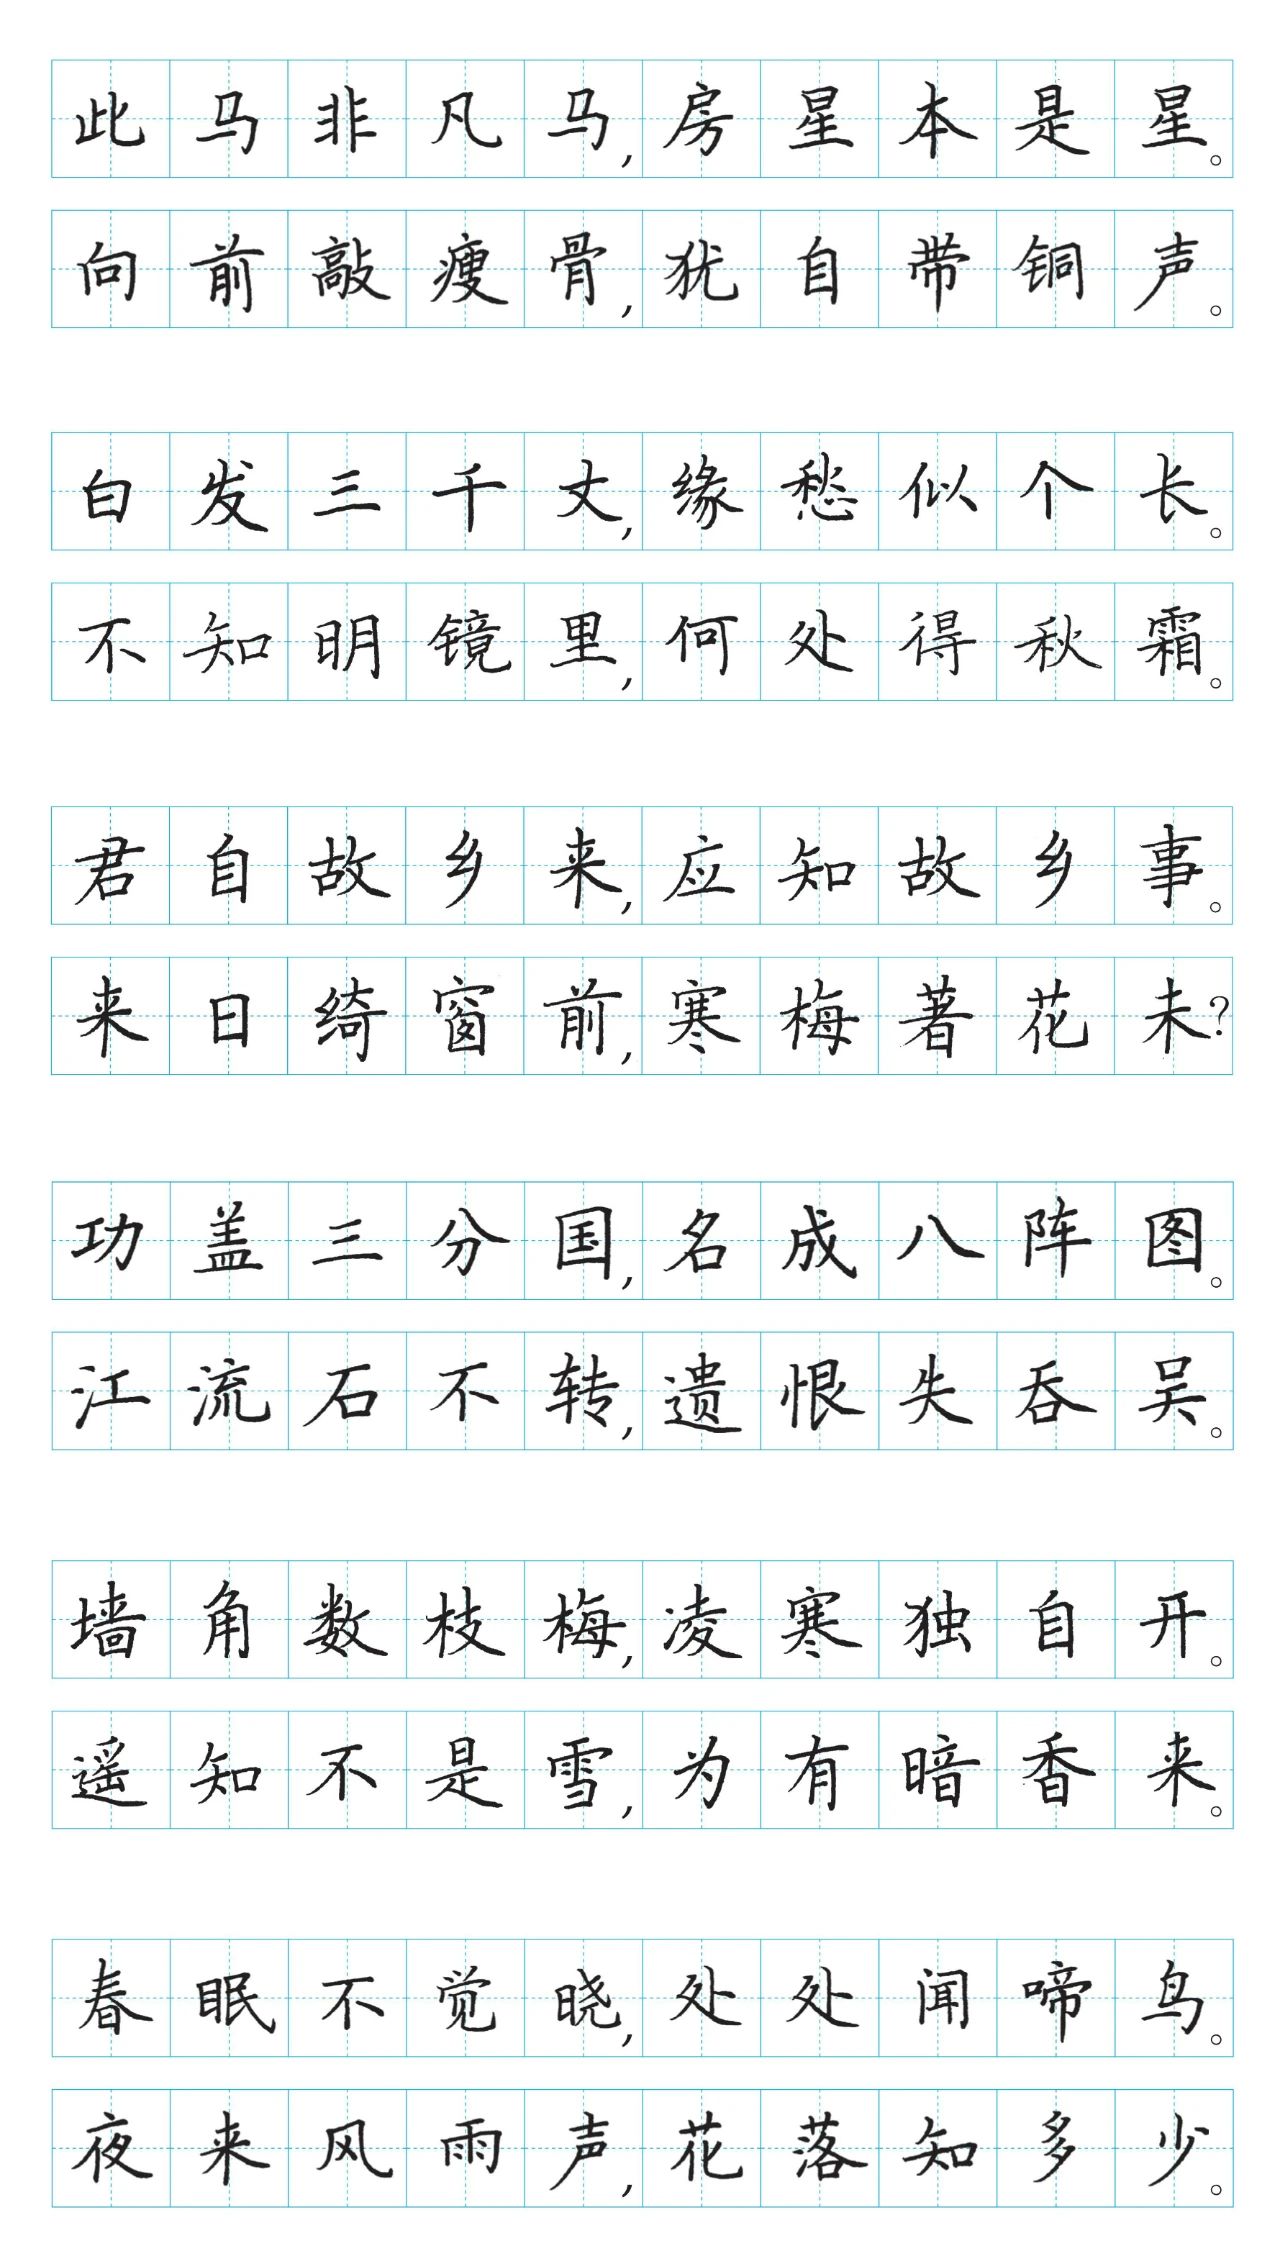 此马非凡马,房星本是星。
向前敲瘦骨,犹自带铜声。
白发三千丈,缘愁似个长。
不知明镜里,何处得秋霜。
君自故乡来,应知故乡事。
来日绮窗前,寒梅著花未?
功盖三分国,名成八阵图。
江流石不转,遗恨失吞吴。
墙角数枝梅,凌寒独自开。
遥知不是雪,为有暗香来。
春眠不觉晓,处处闻啼鸟。
夜来风雨声,花落知多少。